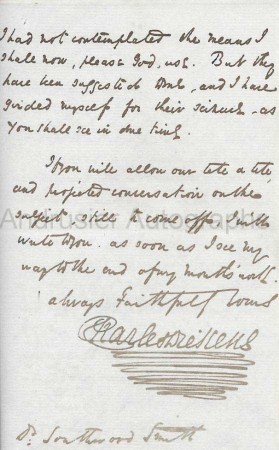 I had not contemplated the means I
shall now, please God, use. But they
have been suggested to me, and I have
girded myself for their seizure – as
you shall see in due time.
If you will allow our tete a tete
and projected conversation on the
subject still to come off, I will
write to you as soon as I see my
way to the end of my month's work.
always Faithfully Yours
Charles Dickens
Dr Southwood Smith
Andrusier Autographs